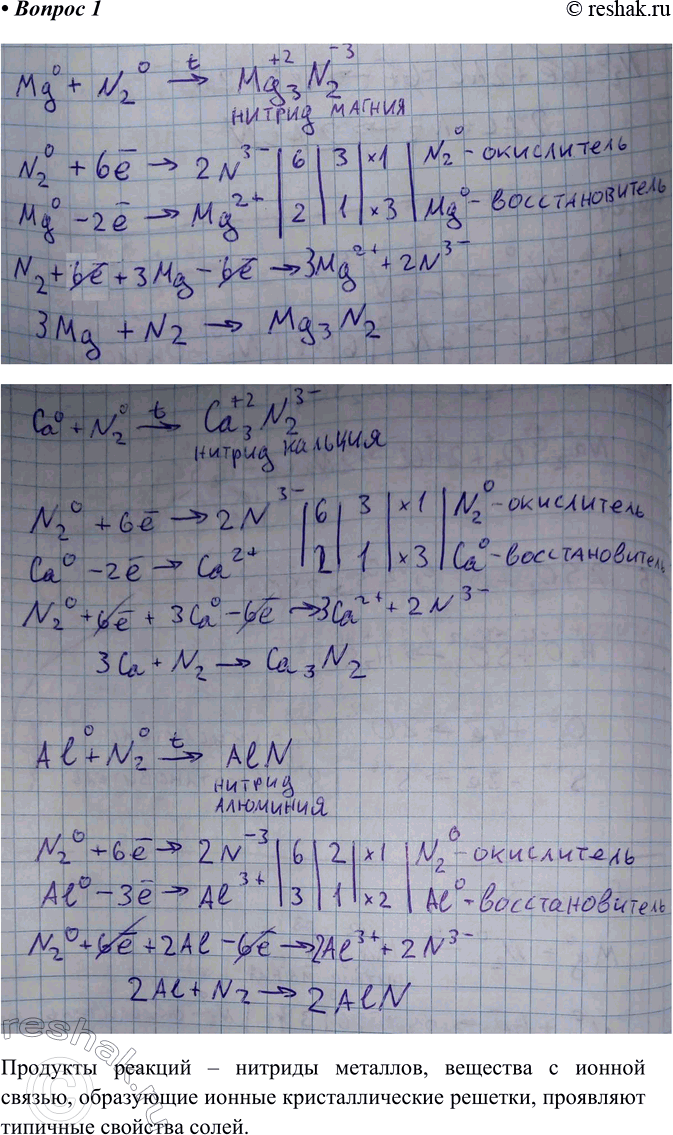 • Вопрос 1
© reshak.ru
Mg⁰ + N₂⁰ →(t) Mg₃⁺²N₂⁻³
нитрид магния
N₂⁰ + 6ē → 2N³⁻ | 6 | 3 | ×1 | N₂⁰ - окислитель
Mg⁰ - 2ē → Mg²⁺ | 2 | 1 | ×3 | Mg⁰ - восстановитель
N₂ + 6ē + 3Mg - 6ē → 3Mg²⁺ + 2N³⁻
3Mg + N₂ → Mg₃N₂
Ca⁰ + N₂⁰ →(t) Ca₃⁺²N₂³⁻
нитрид кальция
N₂⁰ + 6ē → 2N³⁻ | 6 | 3 | ×1 | N₂⁰ - окислитель
Ca⁰ - 2ē → Ca²⁺ | 2 | 1 | ×3 | Ca⁰ - восстановитель
N₂⁰ + 6ē + 3Ca⁰ - 6ē → 3Ca²⁺ + 2N³⁻
3Ca + N₂ → Ca₃N₂
Al⁰ + N₂⁰ →(t) AlN
нитрид
алюминия
N₂⁰ + 6ē → 2N⁻³ | 6 | 2 | ×1 | N₂⁰ - окислитель
Al⁰ - 3ē → Al³⁺ | 3 | 1 | ×2 | Al⁰ - восстановитель
N₂⁰ + 6ē + 2Al - 6ē → 2Al³⁺ + 2N³⁻
2Al + N₂ → 2AlN
reshak.ru
Продукты реакций – нитриды металлов, вещества с ионной
связью, образующие ионные кристаллические решетки, проявляют
типичные свойства солей.